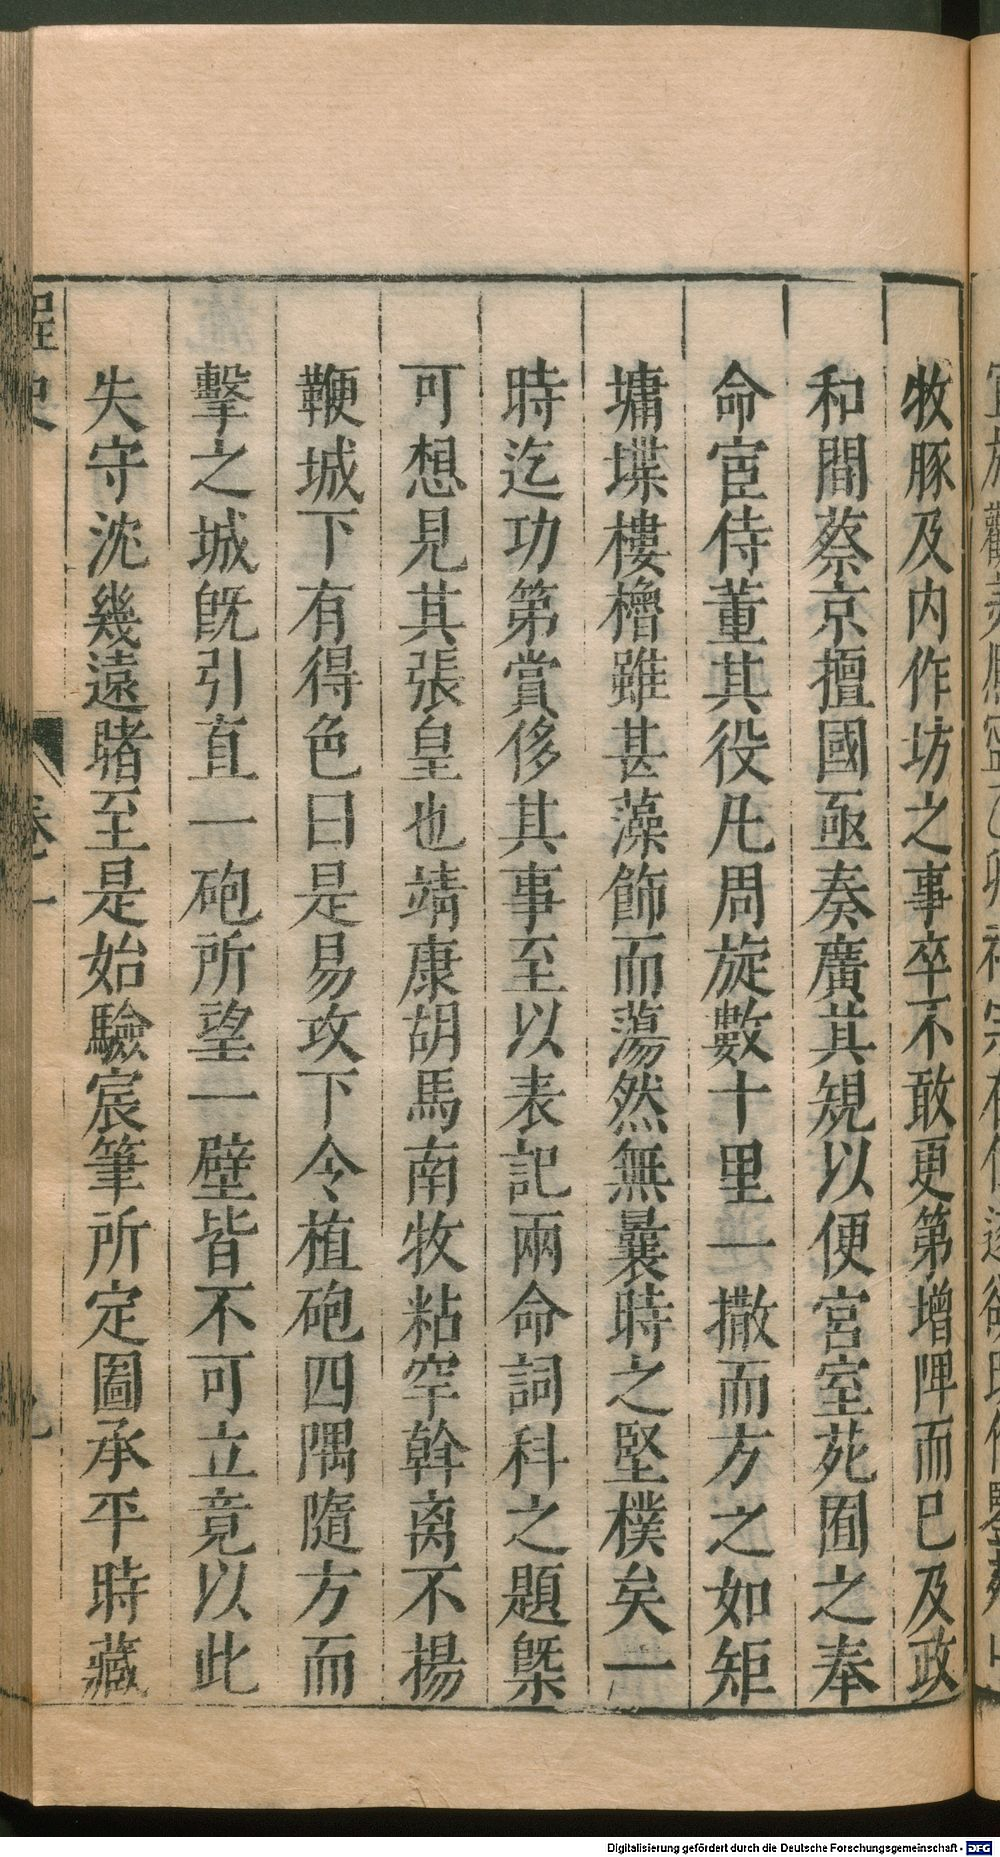 牧豚及内作坊之事卒不敢更第增陴而已及政
和間蔡京擅國亟奏廣其規以便宮室苑囿之奉
命宦侍董其役凡周旋數十里一撤而方之如矩
墉堞樓櫓雖甚藻飾而蕩然無曩時之堅樸矣一
時迄功第賞侈其事至以表記兩命詞科之題槩
可想見其張皇也靖康胡馬南牧粘罕斡离不揚
鞭城下有得色曰是易攻下令植砲四隅隨方而
擊之城旣引直一砲所望一壁皆不可立竟以此
失守沈幾遠睹至是始驗宸筆所定圖承平時藏
桯史
卷一
九
Digitalisierung gefördert durch die Deutsche Forschungsgemeinschaft - DFG